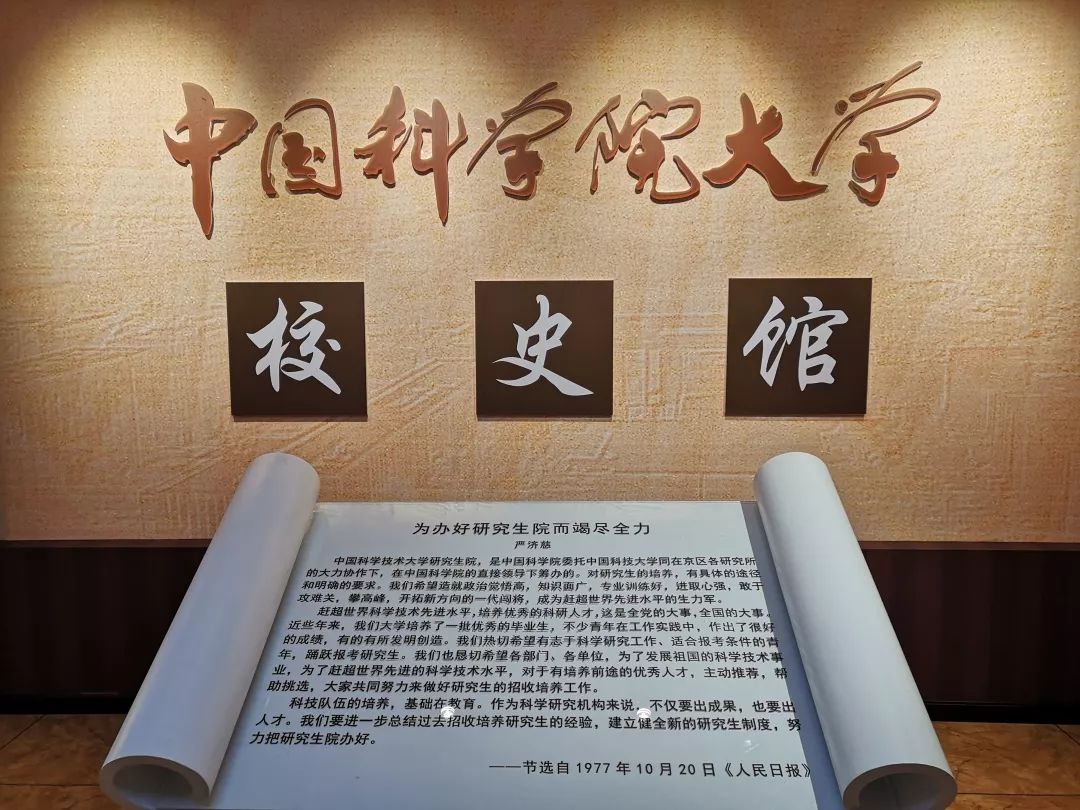 中国科学院大学
校史馆
为办好研究生院而竭尽全力
严济慈
中国科学技术大学研究生院，是中国科学院委托中国科技大学同在京区各研究所
的大力协作下，在中国科学院的直接领导下筹办的。对研究生的培养，有具体的途径
和明确的要求。我们希望造就政治觉悟高，知识面广，专业训练好，进取心强，敢于
攻难关，攀高峰，开拓新方向的一代闯将，成为赶超世界先进水平的生力军。
赶超世界科学技术先进水平，培养优秀的科研人才，这是全党的大事，全国的大事。
近些年来，我们大学培养了一批优秀的毕业生，不少青年在工作实践中，作出了很好
的成绩，有的有所发明创造。我们热切希望有志于科学研究工作、适合报考条件的青
年，踊跃报考研究生。我们也恳切希望各部门、各单位，为了发展祖国的科学技术事
业，为了赶超世界先进的科学技术水平，对于有培养前途的优秀人才，主动推荐，帮
助挑选，大家共同努力来做好研究生的招收培养工作。
科技队伍的培养，基础在教育。作为科学研究机构来说，不仅要出成果，也要出
人才。我们要进一步总结过去招收培养研究生的经验，建立健全新的研究生制度，努
力把研究生院办好。
——节选自1977年10月20日《人民日报》